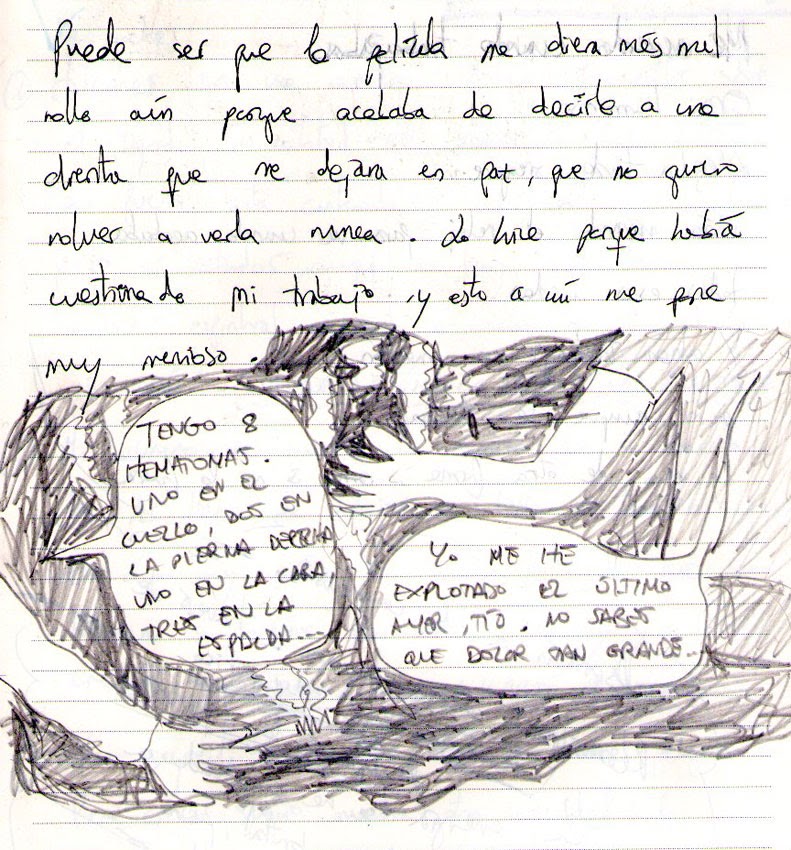 Puede ser que la película me diera más mal
rollo aún porque acababa de decirle a una
que me dejara en paz, que no quiero
volver a verla nunca. Lo hice porque había
cuestionado mi trabajo, y esto a mí me pone
muy nervioso.
TENGO 8
HEMATOMAS.
UNO EN EL
CUELLO, DOS EN
LA PIERNA DERECHA,
UNO EN LA CARA,
TRES EN LA
ESPALDA...
YO ME HE
EXPLOTADO EL ÚLTIMO
AYER, TÍO. NO SABES
QUE DOLOR TAN GRANDE...